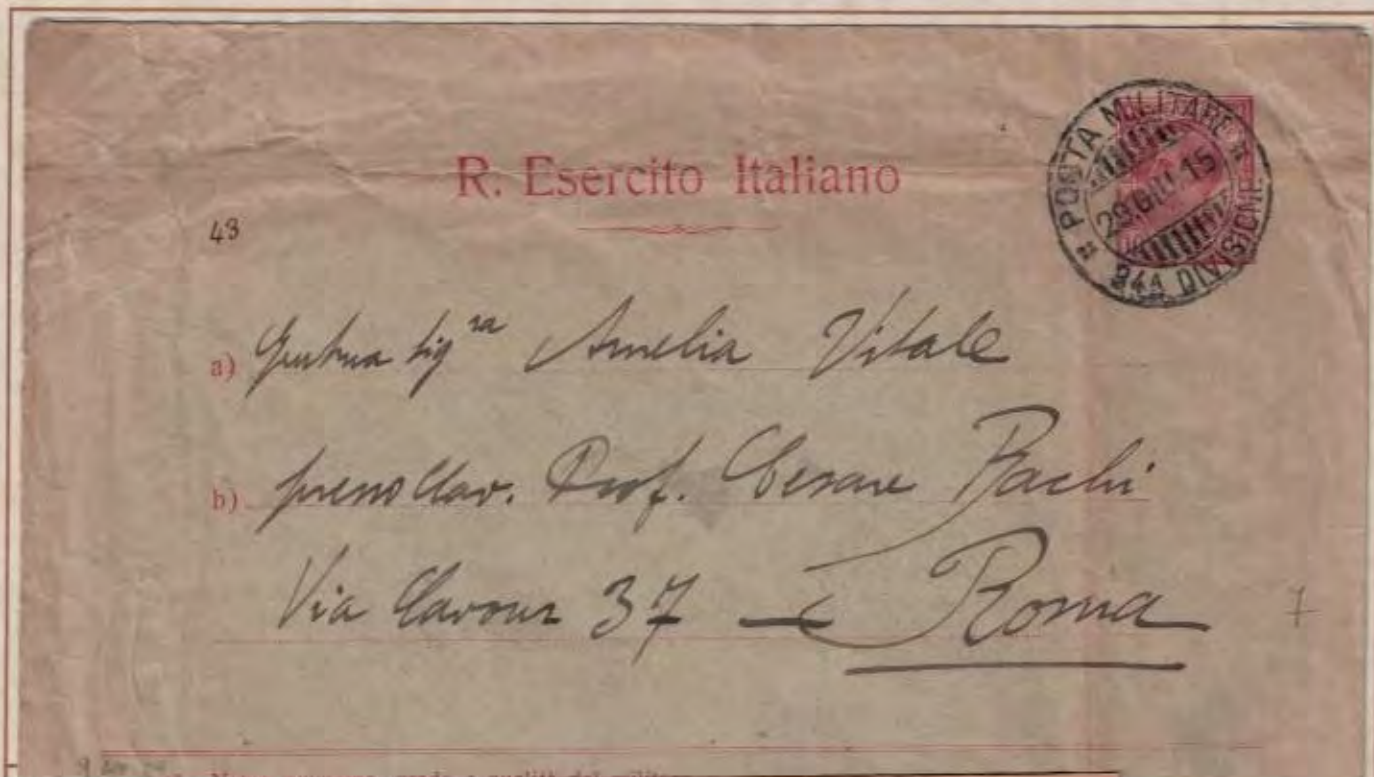 R. Esercito Italiano
POSTA MILITARE
29.GIU.15
DIVISIONE
43
a) Sig.ra Amelia Vitale
b) presso Cav. Prof. Cesare Bachi
Via Cavour 37 — Roma